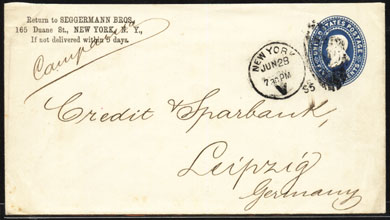 Return to SEGGERMANN BROS.,
165 Duane St., NEW YORK, N. Y.,
If not delivered within 5 days.
NEW YORK
JUN 28
730PM
UNITED STATES POSTAGE
Credit & Sparbank,
Leipzig
Germany